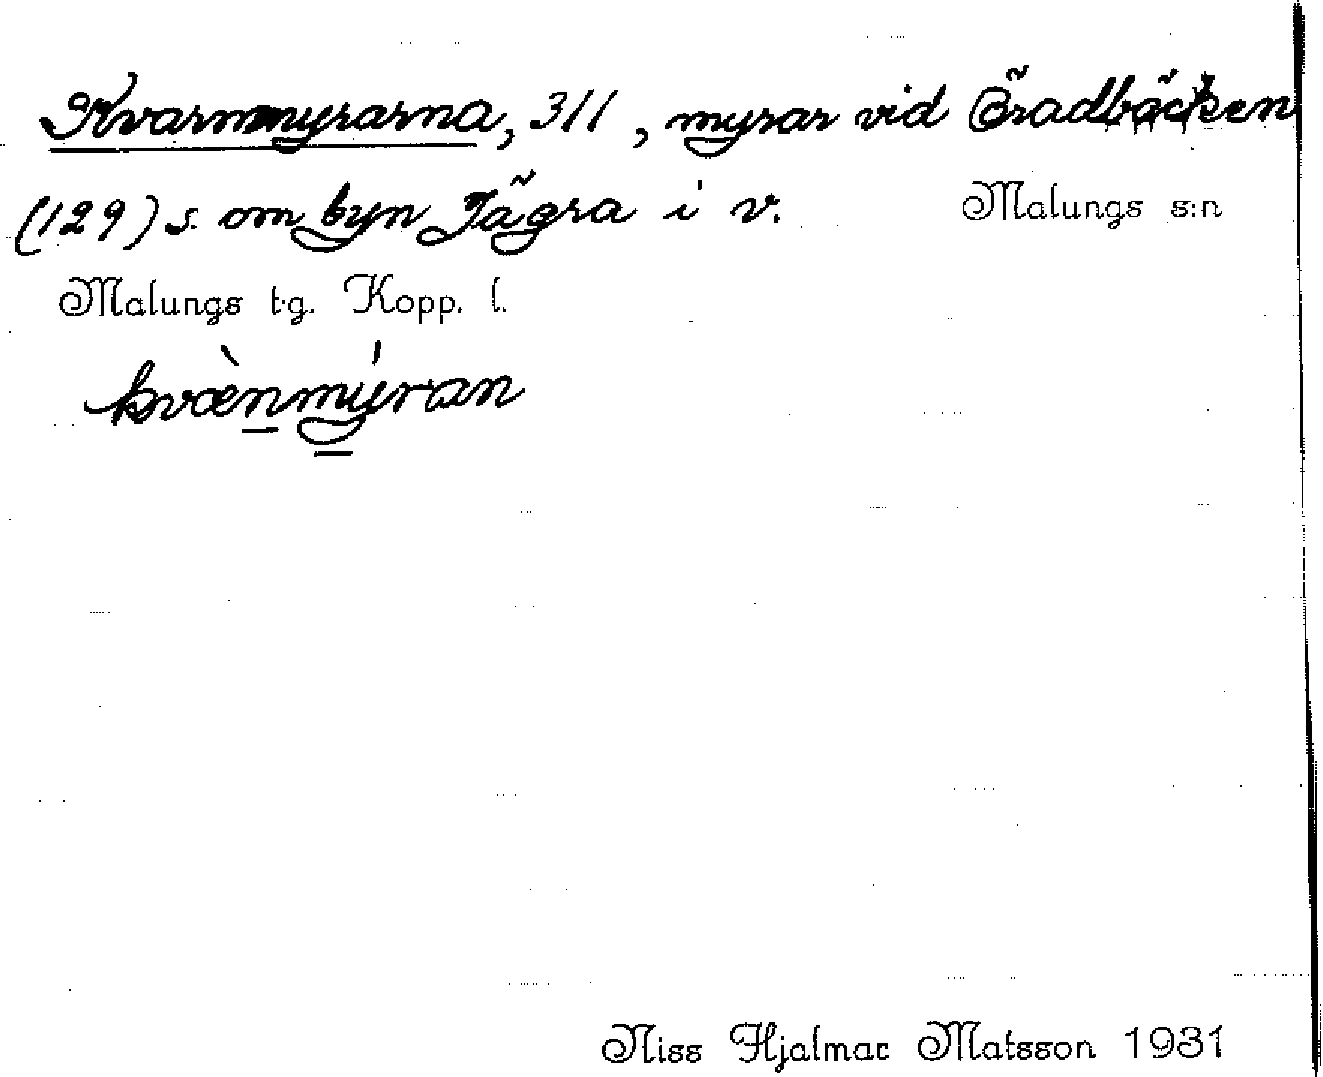 Kvarnmyrarna, 311, myrar vid Öradbäcken
(129) s. om byn Jägra i v. Malungs s:n
Malungs t.g. Kopp. l.
kvæ̀nmýran
Niss Hjalmar Matsson 1931